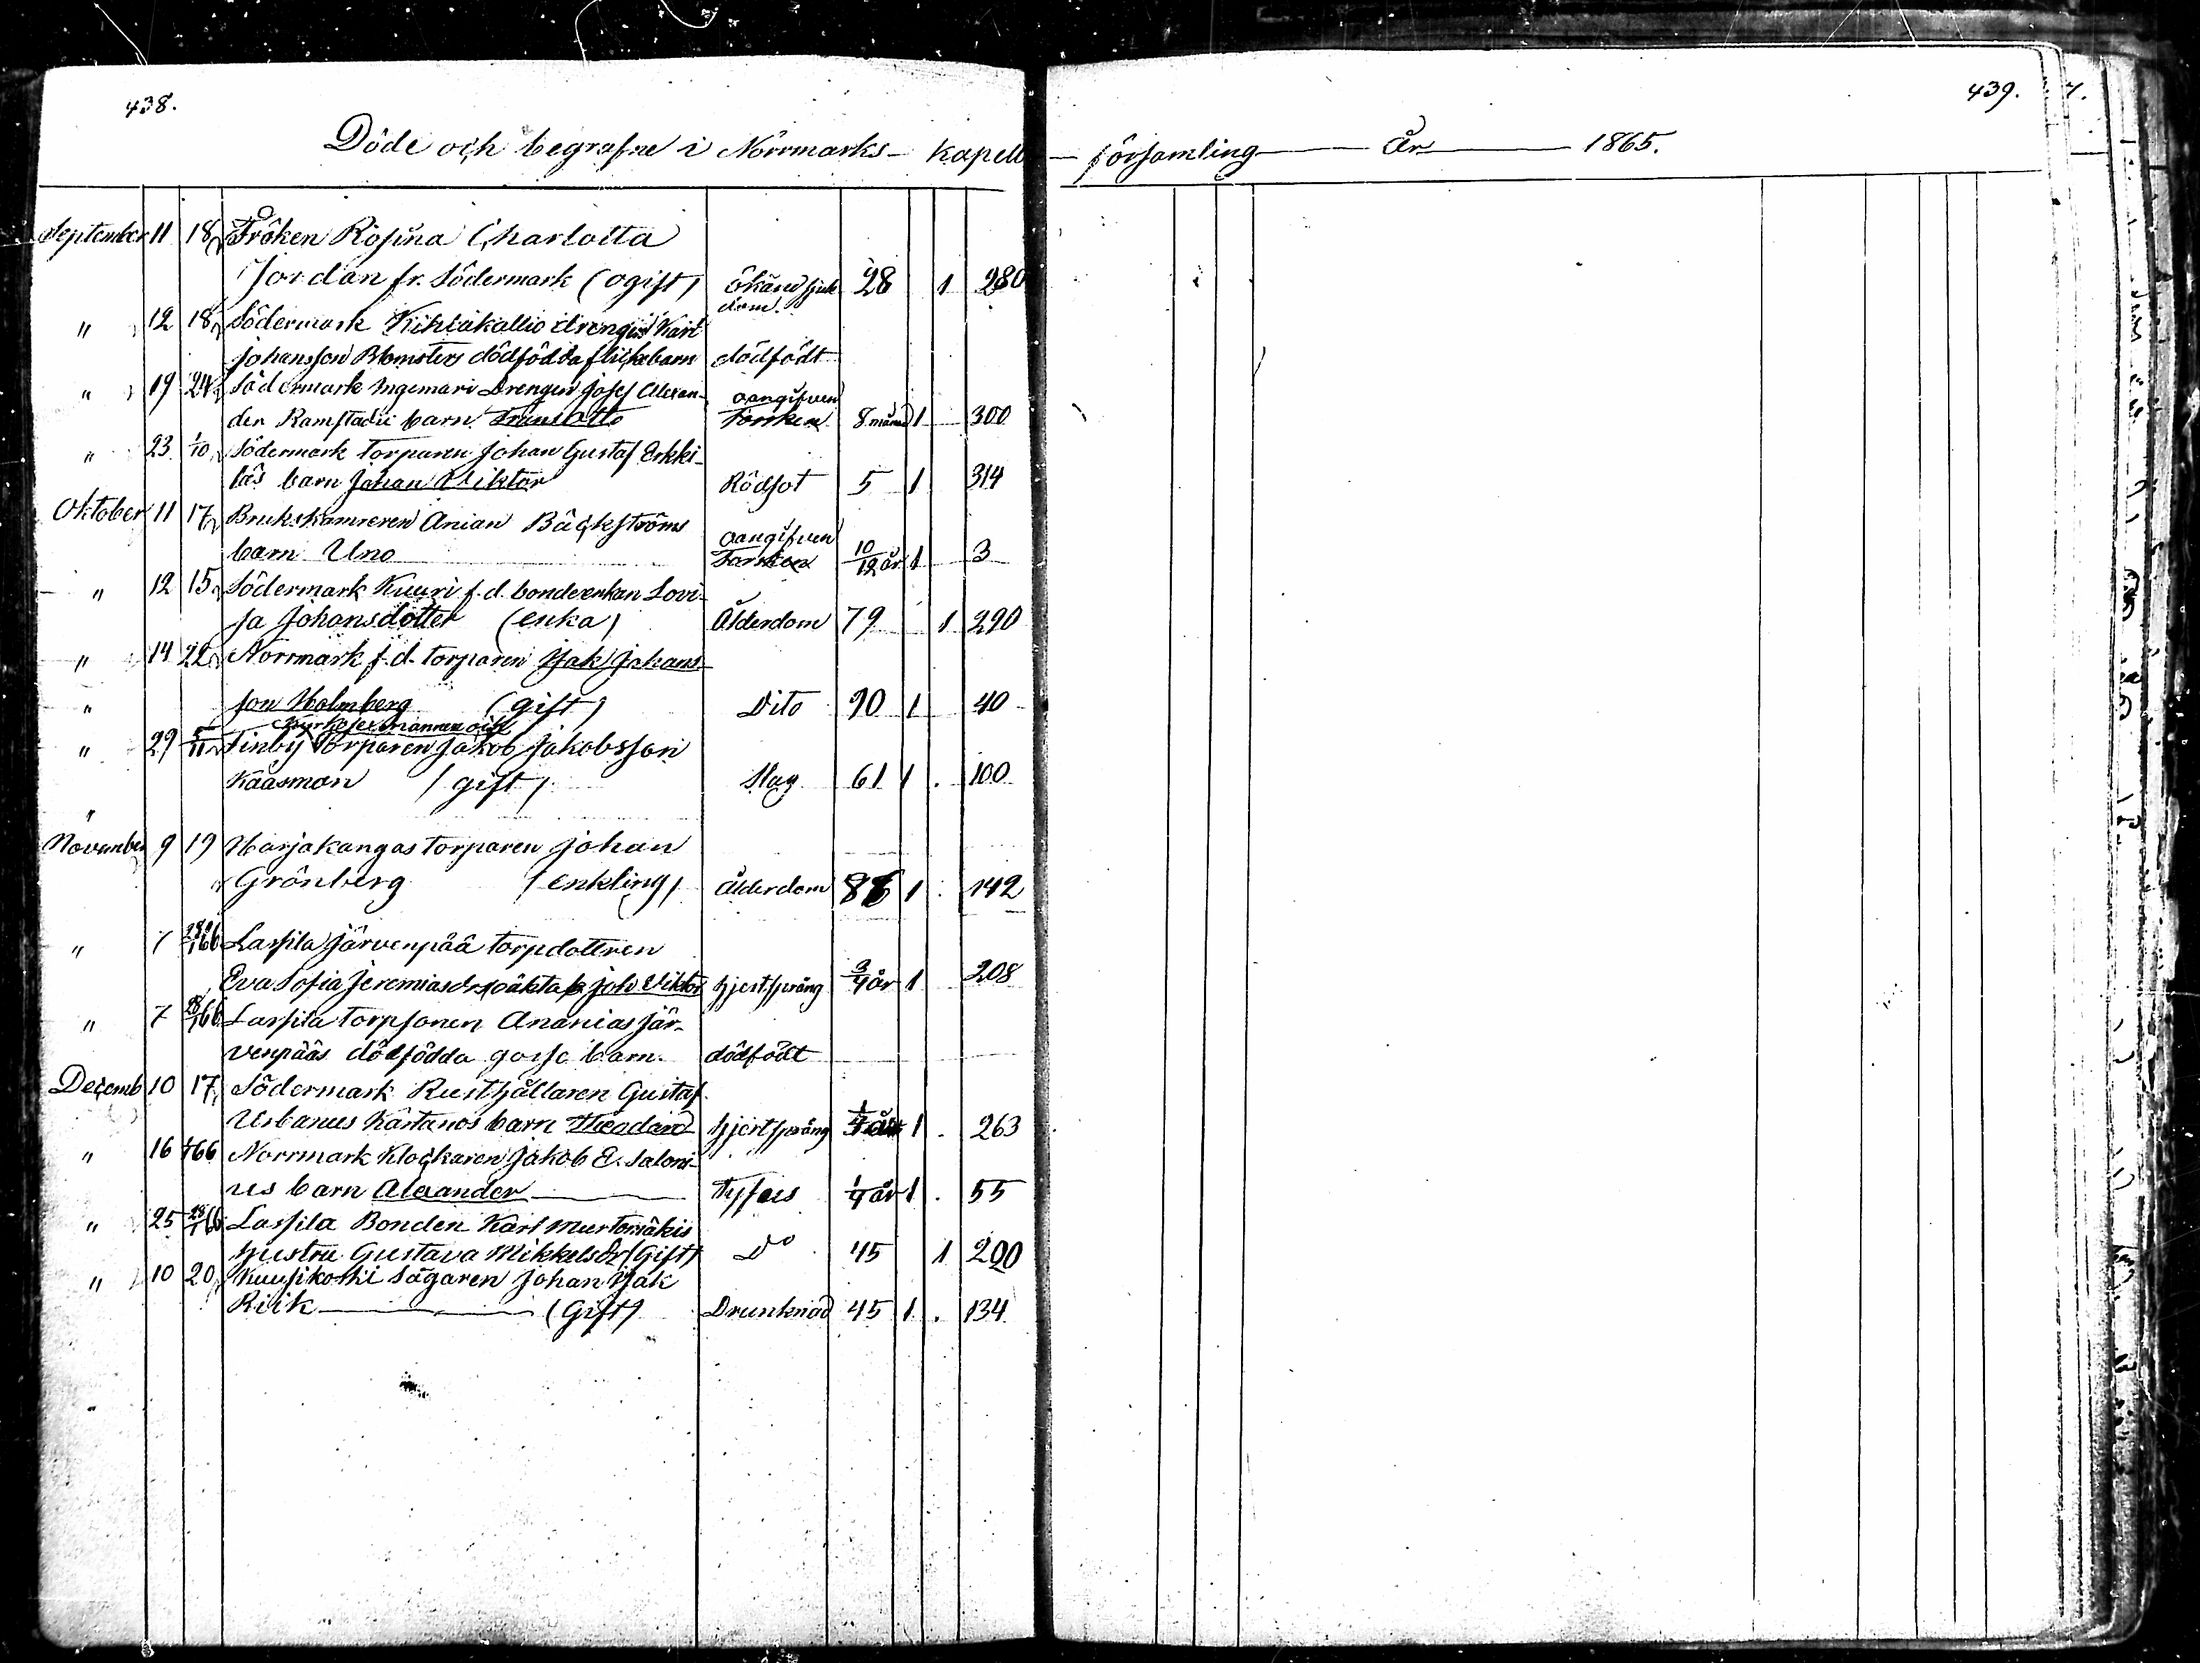 438.
439.
Döde och begrafne i Norrmarks- Kapell- församling År 1865.
September 11 18 Fröken Rosina Charlotta
Jordan fr. Södermark (ogift) okänd sjuk 28 1 280
dom.
" 12 18 Södermark Kihlakallio drengen Karl
Johansson Blomsters dödfödda flickebarn dödfödt
" 19 24 Södermark Ingemari Drengen Josef Alexan-
der Ramstadii barn Frans Otto oangifven 8 månad 1 300
" 23 1/10 Södermark torparen Johan Gustaf Erkki-
läs barn Johan Viktor Rödsot 5 1 314
Oktober 11 17 Brukskamreren Anian Bäckströms
barn Uno oangifven 10/12 år 1 3
" 12 15 Södermark Kuuri f.d. bondeenkan Lovi-
sa Johansdotter (enka) Ålderdom 79 1 290
" 14 22 Norrmark f.d. torparen Isak Johans-
" son Holmberg (gift) Dito 90 1 40
Kyrkosexmannen och
" 29 5/11 Finby Torparen Jakob Jakobsson
Kaasman (gift) Slag 61 1 100
"
November 9 19 Harjakangas torparen Johan
Grönberg (enkling) ålderdom 86 1 142
" 7 28/1 66 Lassila Järvenpää torpdottren
Eva Sofia Jeremiasdr oäkta Joh Viktor hjertspräng 3/4 år 1 208
" 7 28/1 66 Lassila torpsonen Ananias Jär-
venpääs dödfödda gosse barn. dödfödt
Decemb 10 17 Södermark Rusthållaren Gustaf
Urbanus Kartanos barn hjertspräng 1 263
" 16 1/1 66 Norrmark Klockaren Jakob E. Saloni-
us barn Alexander Tyfus 1/4 år 1 55
" 25 28/1 66 Lassila Bonden Karl Murtomäkis
hustru Gustava Mikkelsdr (Gift) Do 45 1 200
" 10 20 Kuusikoski Sågaren Johan Isak
Riik (Gift) Drunknad 45 1 134